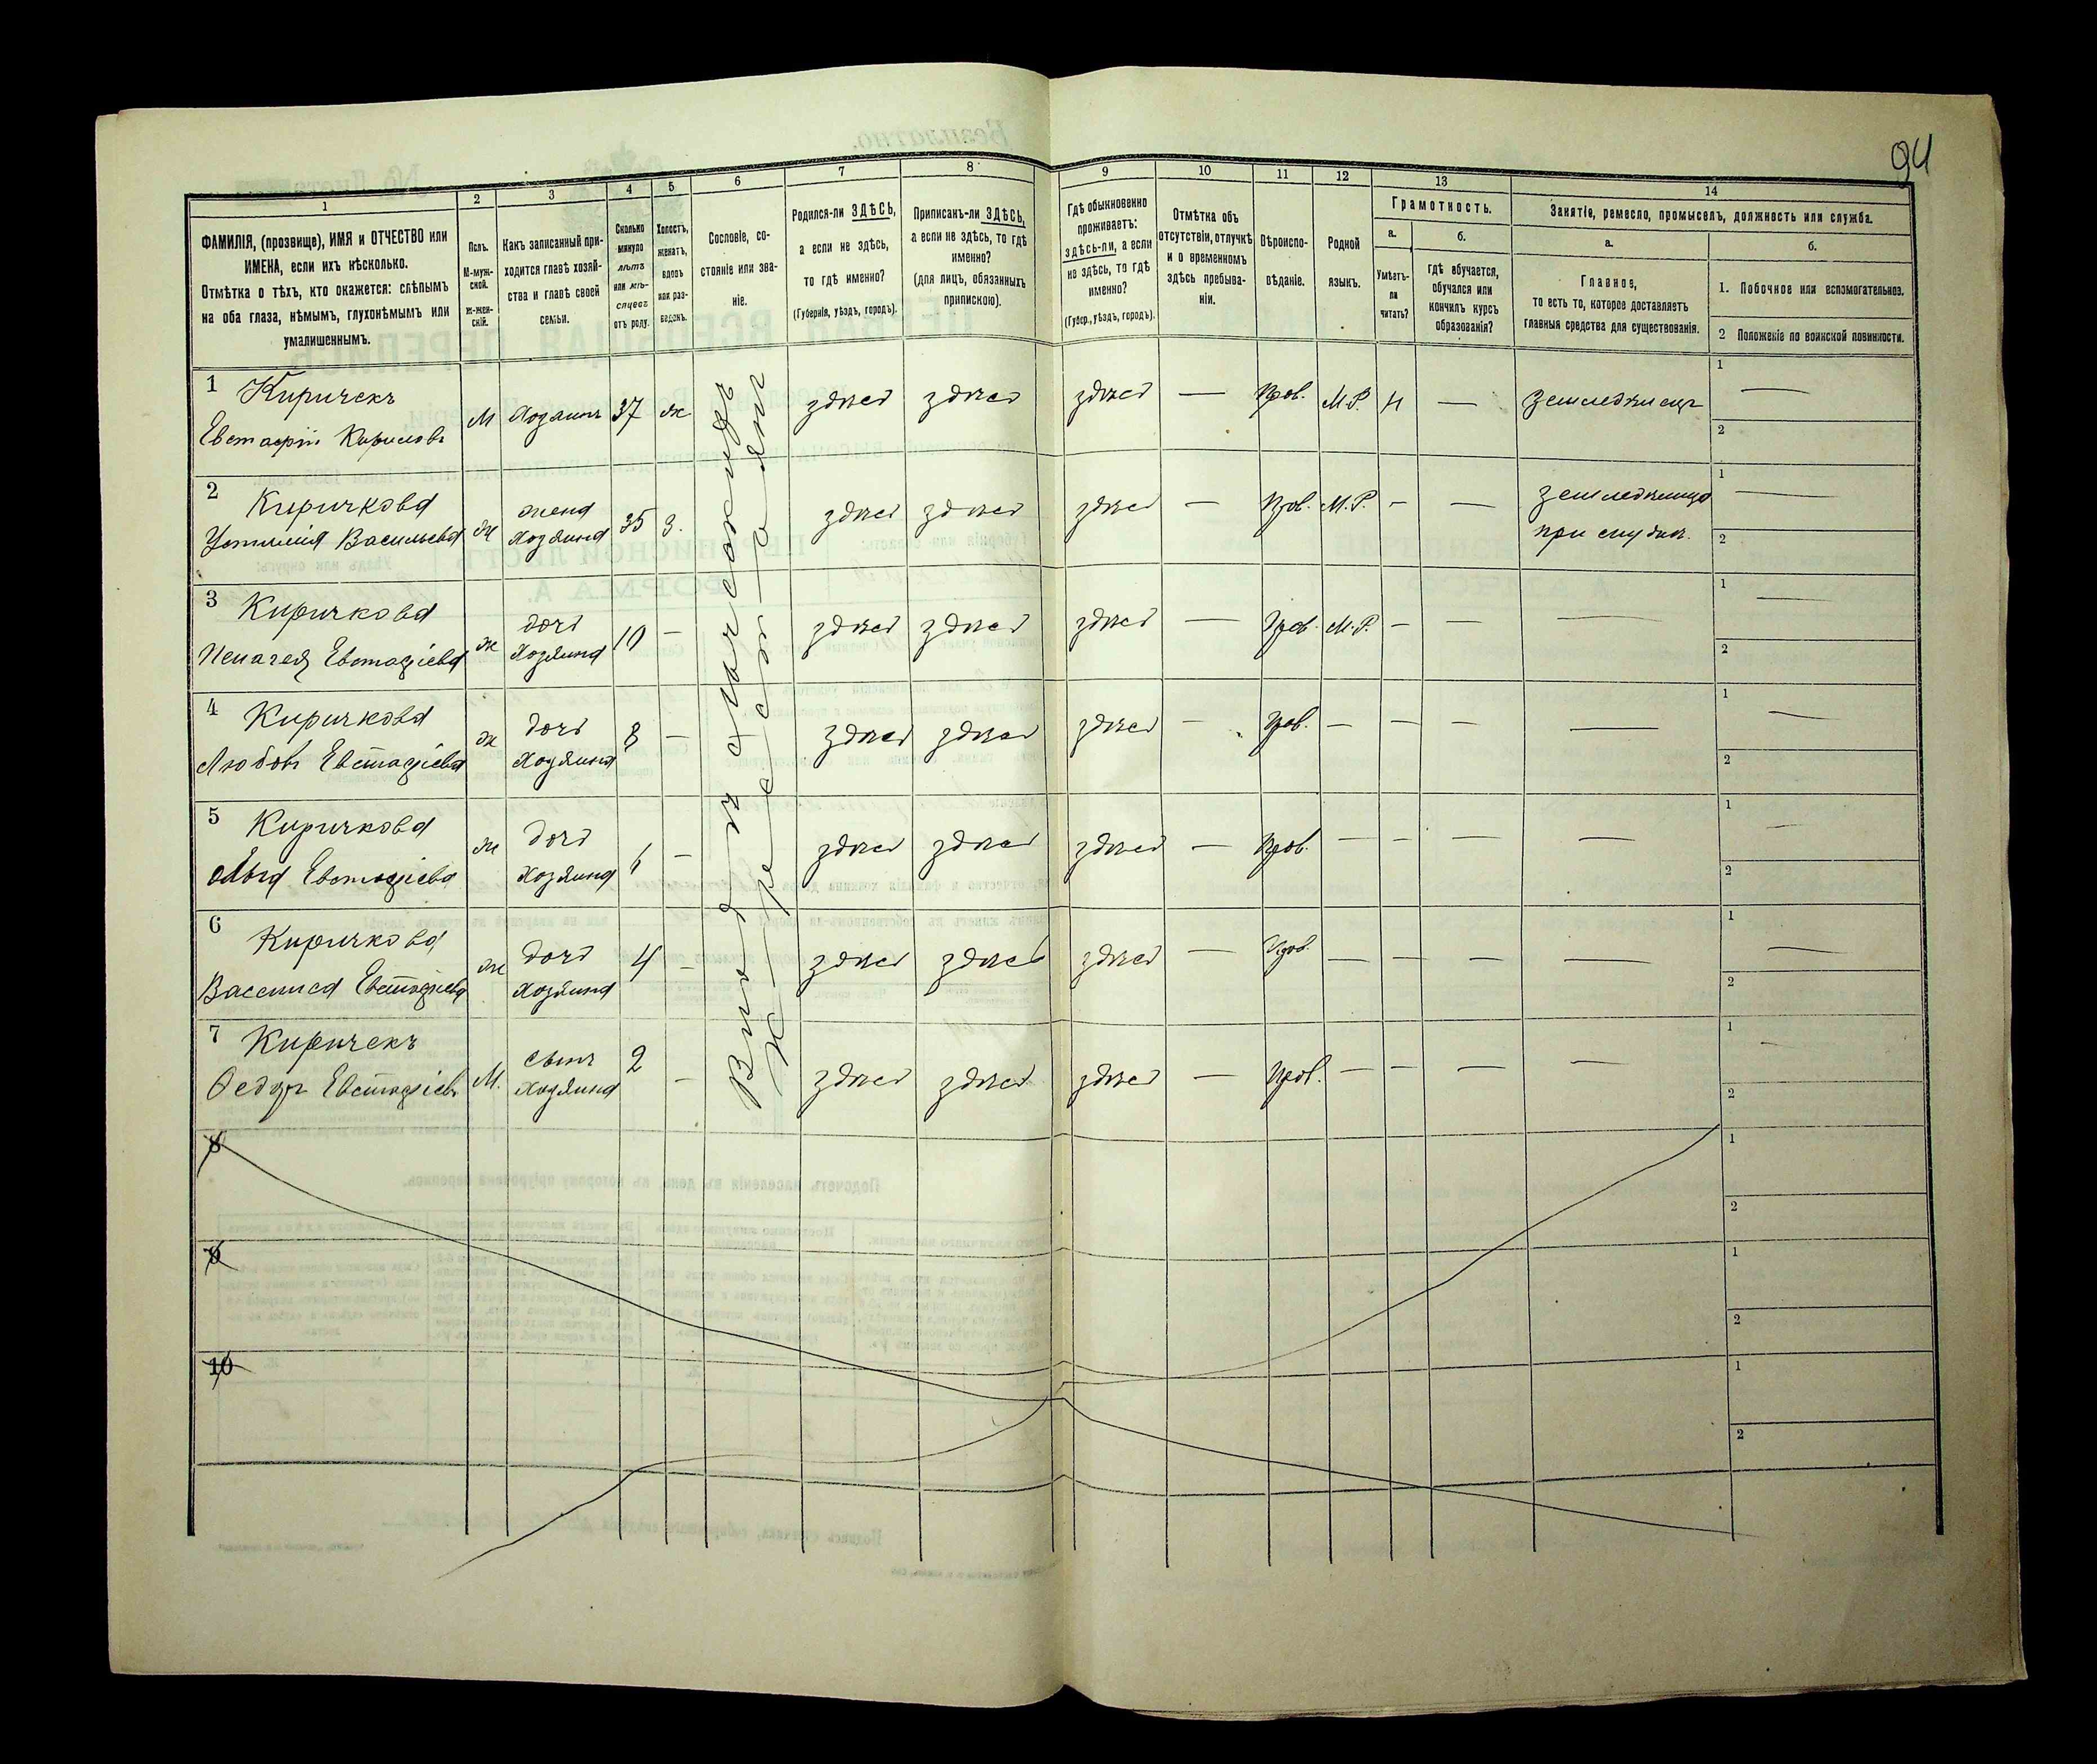 94
1
2
3
4
5
6
7
8
9
10
11
12
13
14
ФАМИЛІЯ, (прозвище), ИМЯ и ОТЧЕСТВО или
ИМЕНА, если ихъ нѣсколько.
Отмѣтка о тѣхъ, кто окажется: слѣпымъ
на оба глаза, нѣмымъ, глухонѣмымъ или
умалишеннымъ.
Полъ.
М-муж-
ской.
ж-жен-
скій.
Какъ записанный при-
ходится главѣ хозяй-
ства и главѣ своей
семьи.
Сколько
минуло
лѣтъ
или мѣ-
сяцевъ
отъ роду.
Холостъ,
женатъ,
вдовъ
или раз-
веденъ.
Сословіе, со-
стояніе или зва-
ніе.
Родился-ли ЗДѢСЬ,
а если не здѣсь,
то гдѣ именно?
(Губернія, уѣздъ, городъ).
Приписанъ-ли ЗДѢСЬ,
а если не здѣсь, то гдѣ
именно?
(для лицъ, обязанныхъ
припискою).
Гдѣ обыкновенно
проживаетъ:
здѣсь-ли, а если
не здѣсь, то гдѣ
именно?
(Губер., уѣздъ, городъ).
Отмѣтка объ
отсутствіи, отлучкѣ
и о временномъ
здѣсь пребыва-
ніи.
Вѣроиспо-
вѣданіе.
Родной
языкъ.
Грамотность.
а.
Умѣетъ-
ли
читать?
б.
Гдѣ обучается,
обучался или
кончилъ курсъ
образованія?
Занятіе, ремесло, промыселъ, должность или служба.
а.
Главное,
то есть то, которое доставляетъ
главныя средства для существованія.
б.
1. Побочное или вспомогательное.
2 Положеніе по воинской повинности.
1 Киричекъ
Евстафій Кириловъ
М Хозяинъ 37 ж здѣсь здѣсь здѣсь — Прав. М.Р. н — Земледѣлецъ
1 —
2
2 Киричкова
Устинія Васильева
ж жена
хозяина
35 з. здѣсь здѣсь здѣсь — Прав. М.Р. — — земледѣлица
при мужѣ.
1 —
2
3 Киричкова
Пелагея Евстафіева
ж дочь
хозяина
10 — здѣсь здѣсь здѣсь — Прав. М.Р. — — —
1 —
2
4 Киричкова
Любовь Евстафіева
ж дочь
хозяина
8 — здѣсь здѣсь здѣсь — Прав. — — — —
1 —
2
5 Киричкова
Евстафіева
ж дочь
хозяина
— здѣсь здѣсь здѣсь — Прав. — — — —
1 —
2
6 Киричкова
Василиса Евстафіева
ж дочь
хозяина
4 — здѣсь здѣсь здѣсь — Прав. — — — —
1 —
2
7 Киричекъ
Федоръ Евстафіевъ
М. сынъ
хозяина
2 — здѣсь здѣсь здѣсь — Прав. — — — —
1 —
2
8
1
2
9
1
2
10
1
2